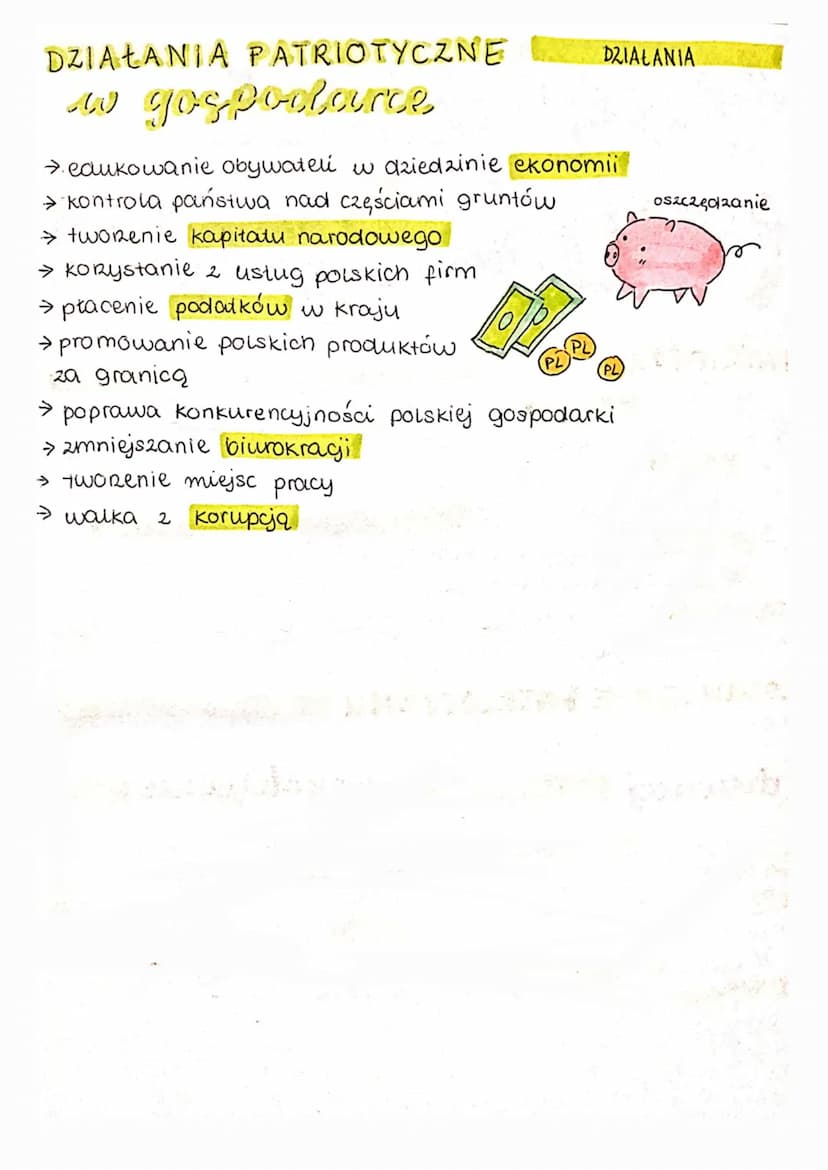 DZIAŁANIA PATRIOTYCZNE
DZIAŁANIA
w gospodarce
→ edukowanie obywateli w dziedzinie ekonomii
→ kontrola państwa nad częściami gruntów
oszczędzanie
→ tworzenie kapitału narodowego
→ korzystanie z usług polskich firm
→ płacenie podatków w kraju
→ promowanie polskich produktów
za granicą
PL PL PL
→ poprawa konkurencyjności polskiej gospodarki
→ zmniejszanie biurokracji
→ tworzenie miejsc pracy
→ walka z korupcją